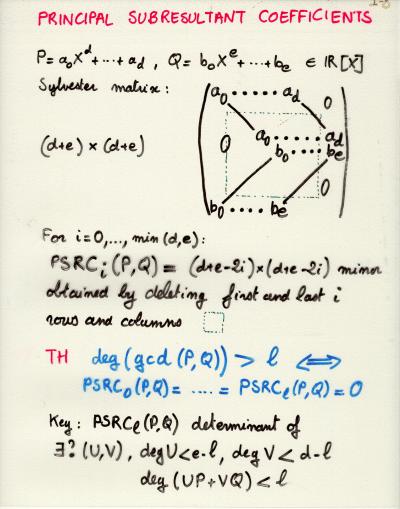 PRINCIPAL SUBRESULTANT COEFFICIENTS
P = a₀X^d + ··· + a_d , Q = b₀X^e + ··· + b_e ∈ IR[X]
Sylvester matrix :
a₀ ····· a_d 0
(d+e) × (d+e)
0 a₀ ····· a_d
b₀ ···· b_e
0
b₀ ···· b_e
For i=0,..., min (d,e) :
PSRC_i (P,Q) = (d+e-2i)×(d+e-2i) minor
obtained by deleting first and last i
rows and columns
TH deg (gcd (P,Q)) > l ⟺
PSRC₀(P,Q) = .... = PSRC_l(P,Q) = 0
Key : PSRC_l(P,Q) determinant of
∃? (U,V), deg U < e-l, deg V < d-l
deg (UP+VQ) < l